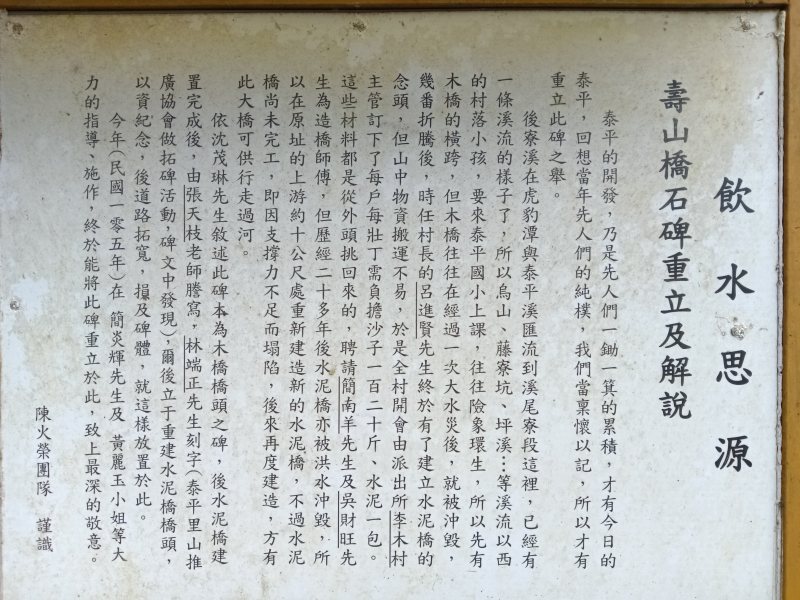 飲水思源
壽山橋石碑重立及解說
泰平的開發，乃是先人們一鋤一箕的累積，才有今日的
泰平，回想當年先人們的純樸，我們當稟懷以記，所以才有
重立此碑之舉。
後寮溪在虎豹潭與泰平溪匯流到溪尾寮段這裡，已經有
一條溪流的樣子了，所以烏山、藤寮坑、坪溪…等溪流以西
的村落小孩，要來泰平國小上課，往往險象環生，所以先有
木橋的橫跨，但木橋往往在經過一次大水災後，就被沖毀，
幾番折騰後，時任村長的呂進賢先生終於有了建立水泥橋的
念頭，但山中物資搬運不易，於是全村開會由派出所李木村
主管訂下了每戶每壯丁需負擔沙子一百二十斤、水泥一包。
這些材料都是從外頭挑回來的，聘請簡南羊先生及吳財旺先
生為造橋師傅，但歷經二十多年後水泥橋亦被洪水沖毀，所
以在原址的上游約十公尺處重新建造新的水泥橋，不過水泥
橋尚未完工，即因支撐力不足而塌陷，後來再度建造，方有
此大橋可供行走過河。
依沈茂琳先生敘述此碑本為木橋橋頭之碑，後水泥橋建
置完成後，由張天枝老師謄寫，林端正先生刻字(泰平里山推
廣協會做拓碑活動，碑文中發現)，爾後立于重建水泥橋橋頭，
以資紀念，後道路拓寬，損及碑體，就這樣放置於此。
今年(民國一零五年)在 簡炎輝先生及 黃麗玉小姐等大
力的指導、施作，終於能將此碑重立於此，致上最深的敬意。
陳火榮團隊 謹識